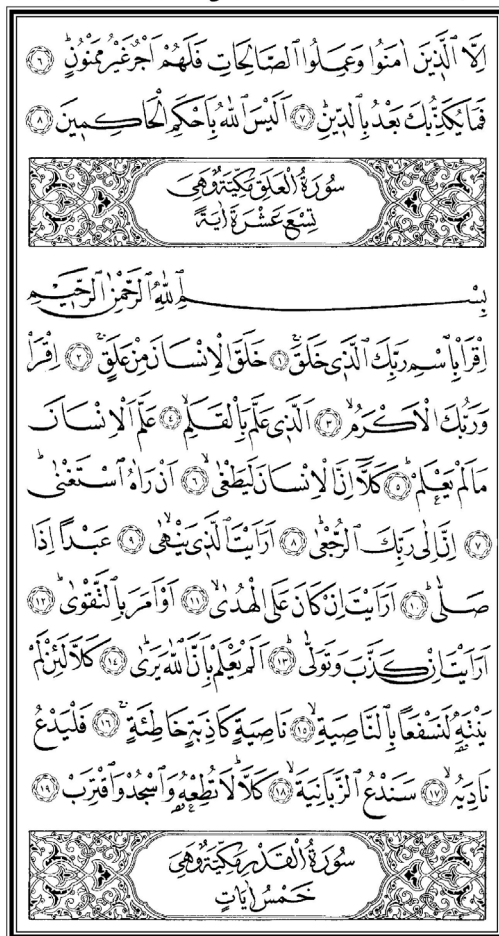 اِلَّا الَّذٖينَ اٰمَنُوا وَعَمِلُوا الصَّالِحَاتِ فَلَهُمْ اَجْرٌ غَيْرُ مَمْنُونٍؕ ﴿٦﴾
فَمَا يُكَذِّبُكَ بَعْدُ بِالدّٖينِؕ ﴿٧﴾ اَلَيْسَ اللّٰهُ بِاَحْكَمِ الْحَاكِمٖينَ ﴿٨﴾
سُورَةُ الْعَلَقِ مَكِّيَّةٌ وَهِىَ
تِسْعَ عَشْرَةَ اٰيَةً
بِسْمِ اللّٰهِ الرَّحْمٰنِ الرَّحٖيمِ
اِقْرَاْ بِاسْمِ رَبِّكَ الَّذٖى خَلَقَۚ ﴿١﴾ خَلَقَ الْاِنْسَانَ مِنْ عَلَقٍۚ ﴿٢﴾ اِقْرَاْ
وَرَبُّكَ الْاَكْرَمُۙ ﴿٣﴾ اَلَّذٖى عَلَّمَ بِالْقَلَمِۙ ﴿٤﴾ عَلَّمَ الْاِنْسَانَ
مَا لَمْ يَعْلَمْؕ ﴿٥﴾ كَلَّٓا اِنَّ الْاِنْسَانَ لَيَطْغٰىۙ ﴿٦﴾ اَنْ رَاٰهُ اسْتَغْنٰىؕ
﴿٧﴾ اِنَّ اِلٰى رَبِّكَ الرُّجْعٰىؕ ﴿٨﴾ اَرَاَيْتَ الَّذٖى يَنْهٰىۙ ﴿٩﴾ عَبْدًا اِذَا
صَلّٰىؕ ﴿١٠﴾ اَرَاَيْتَ اِنْ كَانَ عَلَى الْهُدٰىۙ ﴿١١﴾ اَوْ اَمَرَ بِالتَّقْوٰىؕ ﴿١٢﴾
اَرَاَيْتَ اِنْ كَذَّبَ وَتَوَلّٰىؕ ﴿١٣﴾ اَلَمْ يَعْلَمْ بِاَنَّ اللّٰهَ يَرٰىؕ ﴿١٤﴾ كَلَّا لَئِنْ لَمْ
يَنْتَهِ لَنَسْفَعًا بِالنَّاصِيَةِۙ ﴿١٥﴾ نَاصِيَةٍ كَاذِبَةٍ خَاطِئَةٍۚ ﴿١٦﴾ فَلْيَدْعُ
نَادِيَهُۙ ﴿١٧﴾ سَنَدْعُ الزَّبَانِيَةَۙ ﴿١٨﴾ كَلَّاؕ لَا تُطِعْهُ وَاسْجُدْ وَاقْتَرِبْ ﴿١٩﴾
سُورَةُ الْقَدْرِ مَكِّيَّةٌ وَهِىَ
خَمْسُ اٰيَاتٍ